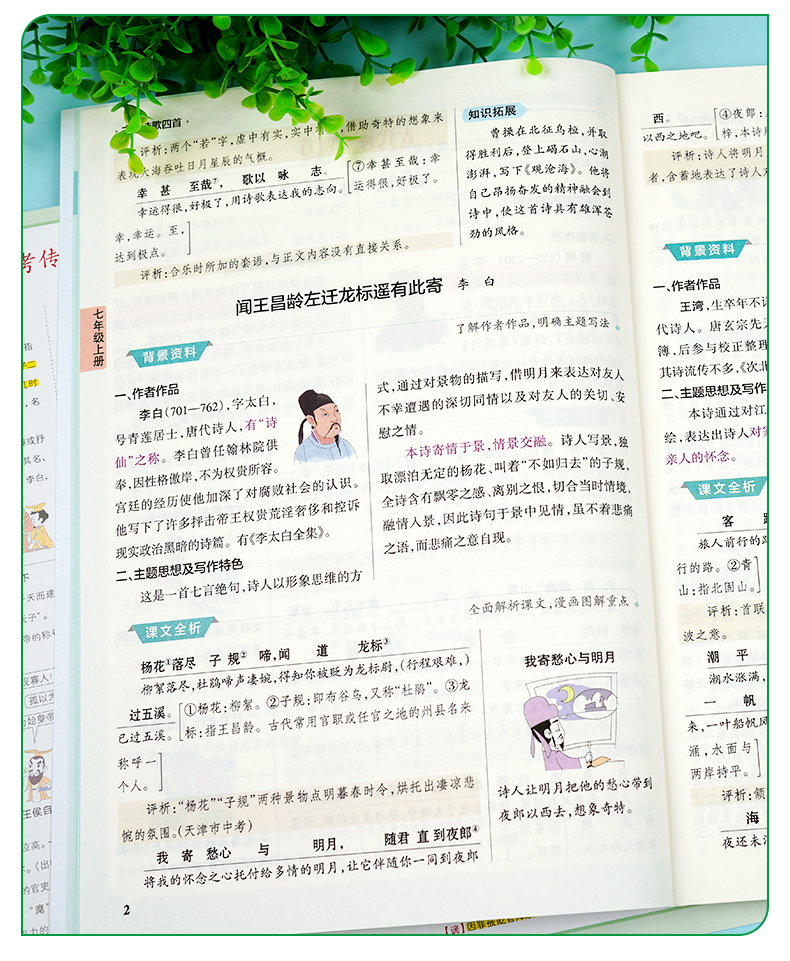 诗歌四首
评析:两个“若”字,虚中有实,实中有,借助奇特的想象来
表现大海吞吐日月星辰的气概。
幸甚至哉⑦,歌以咏志。
幸运得很,好极了,用诗歌表达我的志向。
⑦幸甚至哉:幸
运得很,好极了。
幸,幸运。至,
达到极点。
评析:合乐时所加的套语,与正文内容没有直接关系。
知识拓展
曹操在北征乌桓,并取
得胜利后,登上碣石山,心潮
澎湃,写下《观沧海》。他将
自己昂扬奋发的精神融会到
诗中,使这首诗具有雄浑苍
劲的风格。
七年级上册
闻王昌龄左迁龙标遥有此寄 李白
了解作者作品,明确主题写法
背景资料
一、作者作品
李白(701—762),字太白,
号青莲居士,唐代诗人,有“诗
仙”之称。李白曾任翰林院供
奉,因性格傲岸,不为权贵所容。
宫廷的经历使他加深了对腐败社会的认识。
他写下了许多抨击帝王权贵荒淫奢侈和控诉
现实政治黑暗的诗篇。有《李太白全集》。
二、主题思想及写作特色
这是一首七言绝句,诗人以形象思维的方
式,通过对景物的描写,借明月来表达对友人
不幸遭遇的深切同情以及对友人的关切、安
慰之情。
本诗寄情于景,情景交融。诗人写景,独
取漂泊无定的杨花、叫着“不如归去”的子规,
全诗含有飘零之感、离别之恨,切合当时情境,
融情入景,因此诗句于景中见情,虽不着悲痛
之语,而悲痛之意自现。
全面解析课文,漫画图解重点
课文全析
杨花①落尽子规②啼,闻道龙标③
柳絮落尽,杜鹃啼声凄婉,得知你被贬为龙标尉,(行程艰难,)
过五溪。
已过五溪。
①杨花:柳絮。②子规:即布谷鸟,又称“杜鹃”。③龙
标:指王昌龄。古代常用官职或任官之地的州县名来
称呼一
个人。
评析:“杨花”“子规”两种景物点明暮春时令,烘托出凄凉悲
惋的氛围。(天津市中考)
我寄愁心与明月,随君直到夜郎④
将我的怀念之心托付给多情的明月,让它伴随你一同到夜郎
我寄愁心与明月
诗人让明月把他的愁心带到
夜郎以西去,想象奇特。
2
西。
以西之地吧。
④夜郎:
评析:诗人将明月
者,含蓄地表达了诗人
背景资料
一、作者作品
王湾,生卒年不
代诗人。唐玄宗先
簿,后参与校正整理
其诗流传不多,《次北
二、主题思想及写作
本诗通过对江
绘,表达出诗人对
亲人的怀念。
课文全析
客
旅人前行的路
行的路。②青
山:指北固山。
评析:首联
波之意。
潮平
潮水涨满,
一帆
来,一叶船帆
涌,水面与
两岸持平。
评析:
海
夜还未
考传